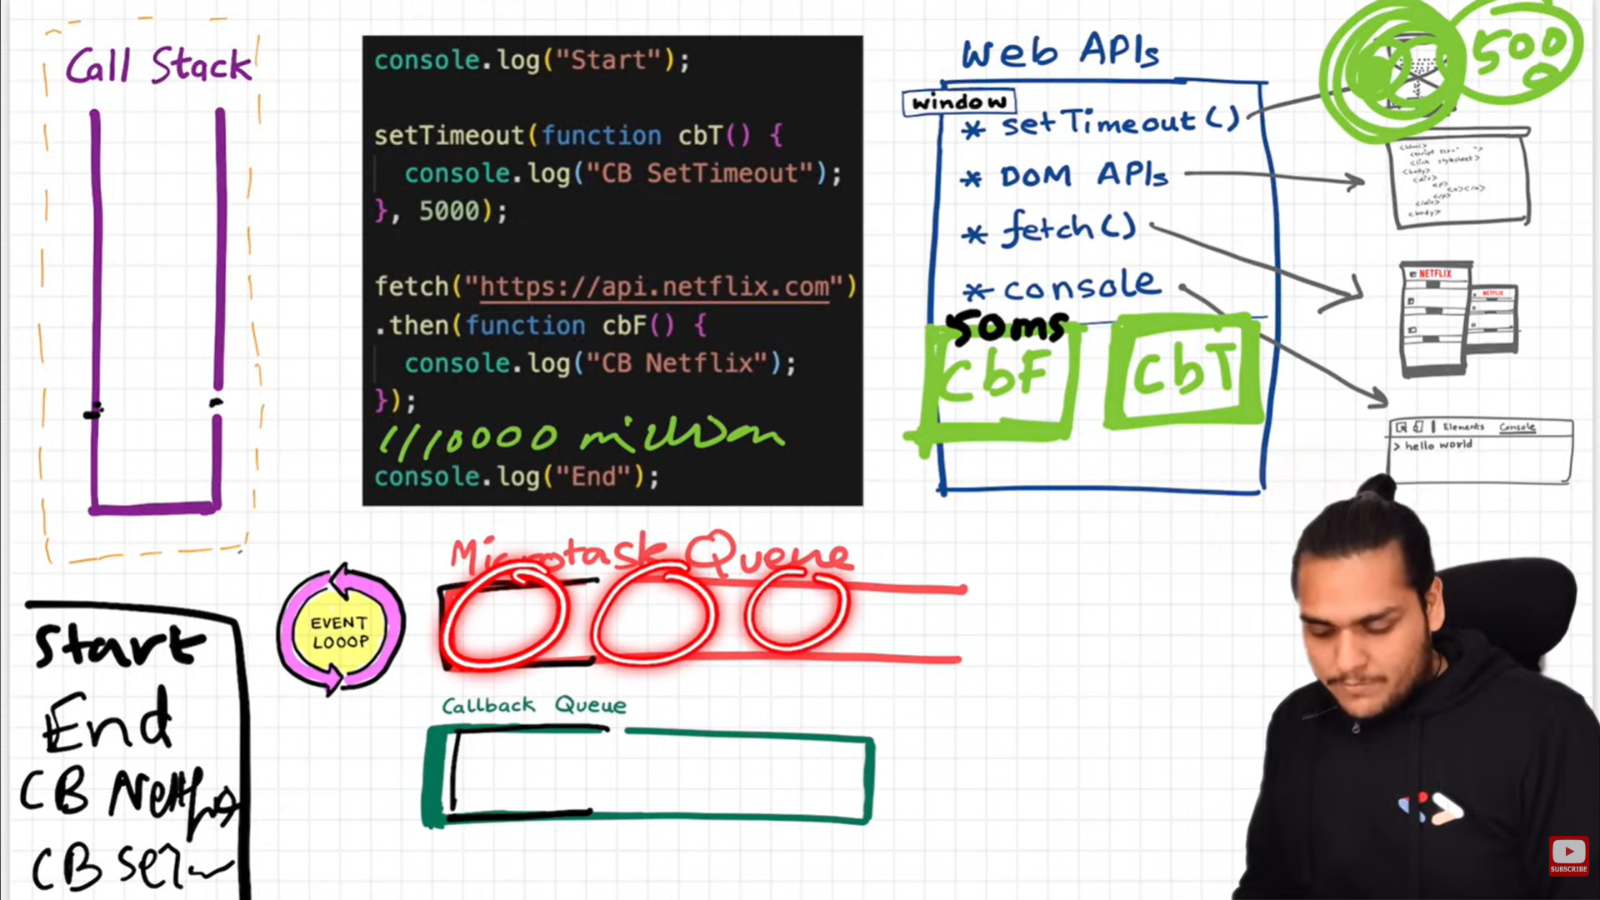 Call Stack
console.log("Start");
setTimeout(function cbT() {
console.log("CB SetTimeout");
}, 5000);
fetch("https://api.netflix.com")
.then(function cbF() {
console.log("CB Netflix");
});
//10000 million
console.log("End");
Web APIs
window
* setTimeout()
* DOM APIs
* fetch()
* console
50ms
CbF
CbT
500
NETFLIX
NETFLIX
Elements Console
> hello world
Microtask Queue
EVENT
LOOOP
Callback Queue
Start
End
CB Netflix
CB Set
SUBSCRIBE